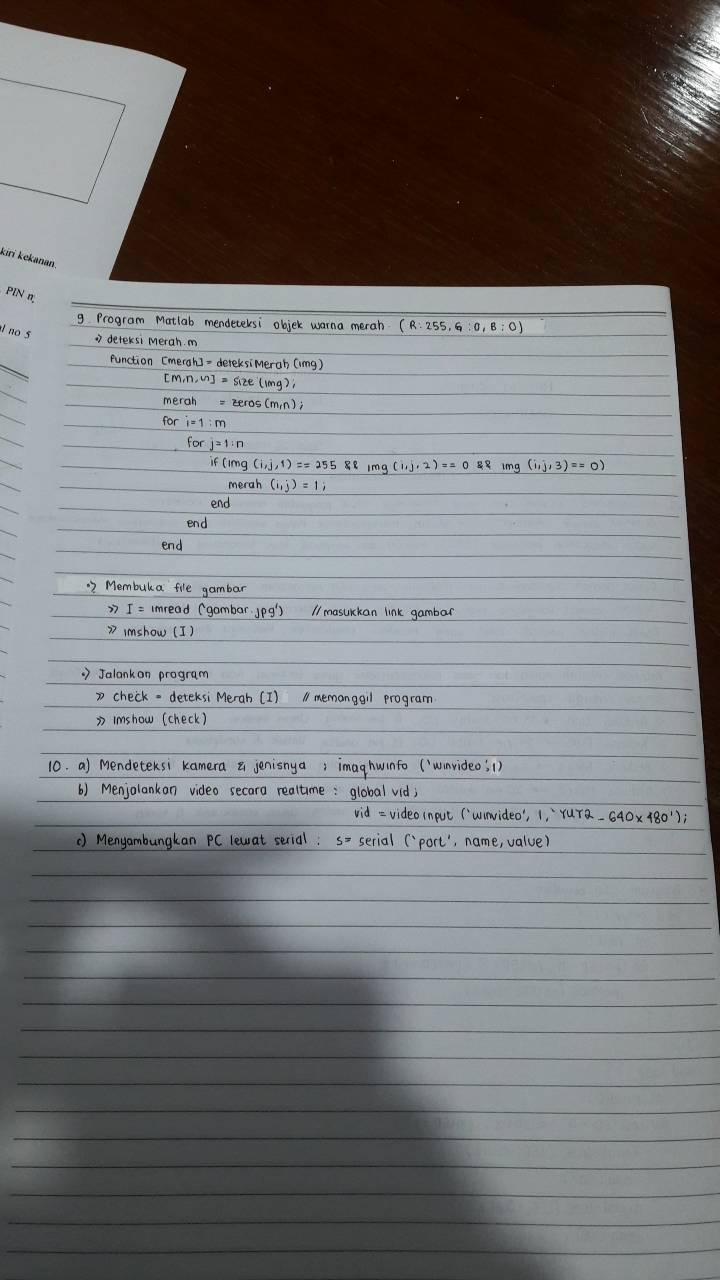 kiri kekanan.
PIN
no 5
9. Program Matlab mendeteksi objek warna merah. (R:255, G:0, B:0)
•> deteksi Merah.m
function [merah] = deteksiMerah (img)
[m,n,~] = size (img);
merah = zeros(m,n);
for i=1:m
for j=1:n
if (img (i,j,1) == 255 && img (i,j,2) == 0 && img (i,j,3) == 0)
merah (i,j) = 1;
end
end
end
•> Membuka file gambar
>> I = imread ('gambar.jpg') // masukkan link gambar
>> imshow (I)
•> Jalankan program
>> check = deteksi Merah (I) // memanggil program.
>> imshow (check)
10. a) Mendeteksi kamera & jenisnya ; imaqhwinfo ('winvideo',1)
b) Menjalankan video secara realtime : global vid;
vid = videoinput ('winvideo', 1, 'YUY2_640x480');
c) Menyambungkan PC lewat serial : s= serial ('port', name, value)